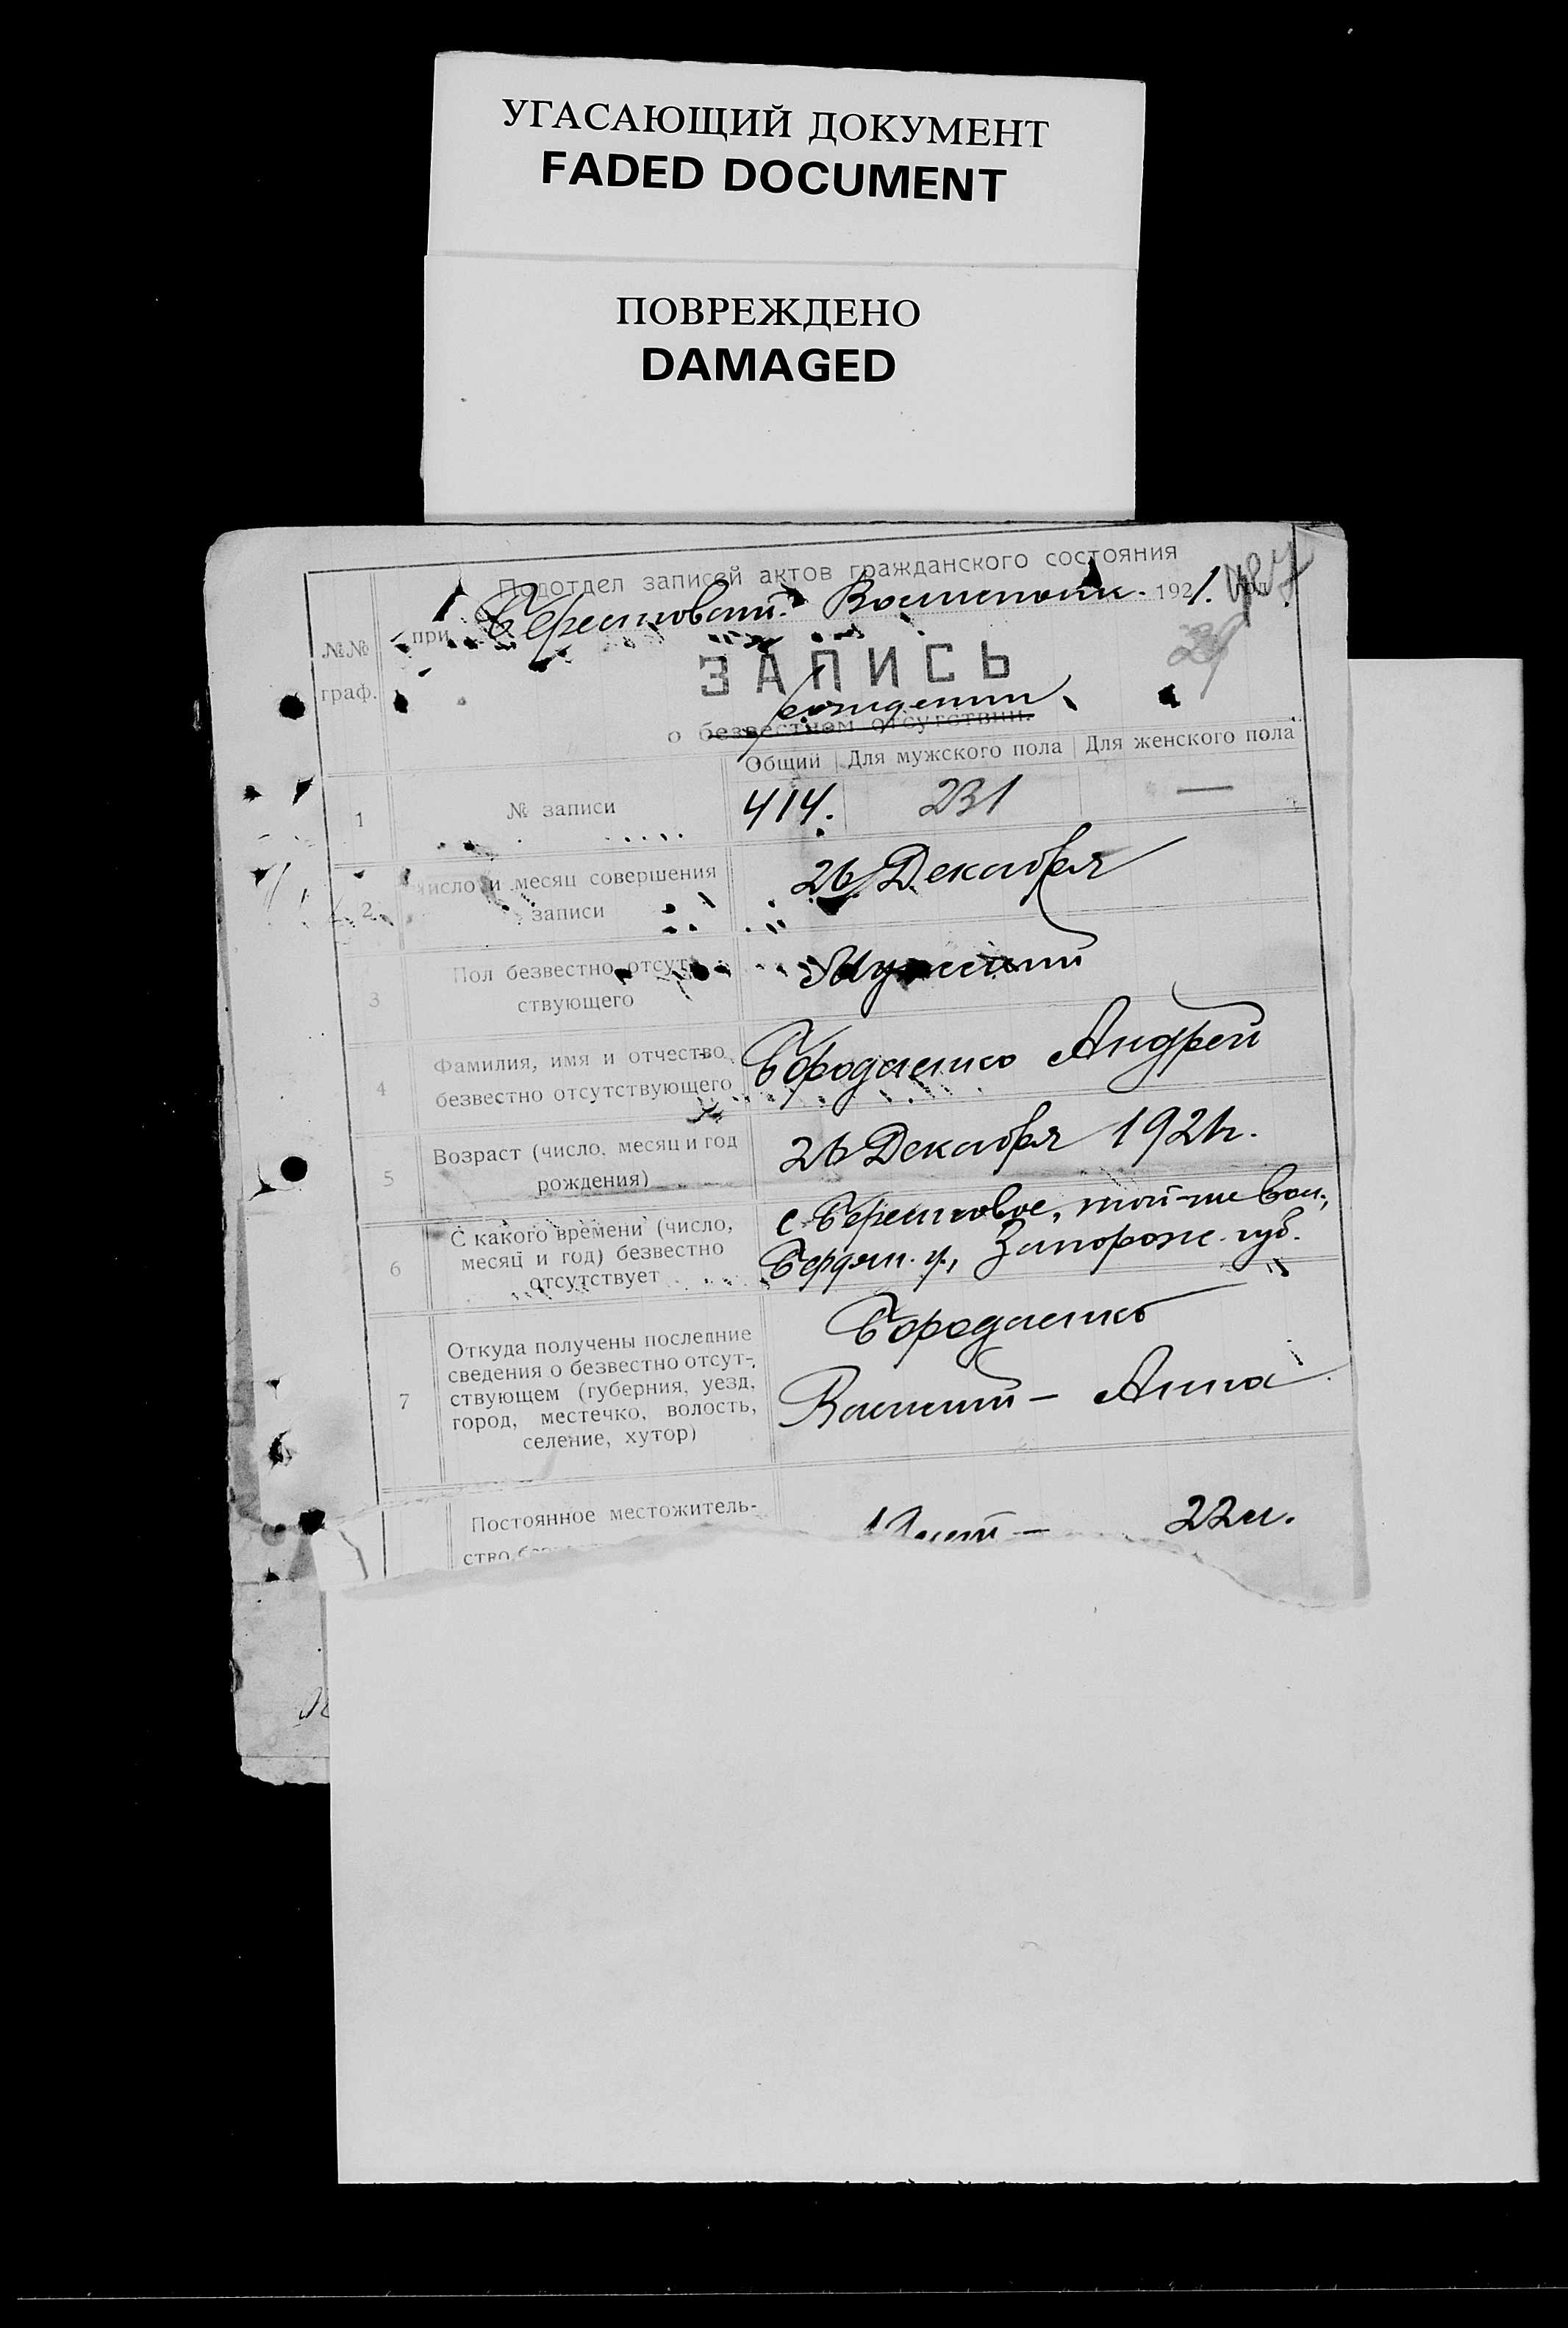 УГАСАЮЩИЙ ДОКУМЕНТ
FADED DOCUMENT
ПОВРЕЖДЕНО
DAMAGED
Подотдел записей актов гражданского состояния
при Берестовском 1921.
№№
граф.
ЗАПИСЬ
рождении
о безвестном отсутствии.
Общий Для мужского пола Для женского пола
1 № записи 414. 231 —
2 Число и месяц совершения
записи
26 Декабря
3 Пол безвестно отсут-
ствующего
Мужской
4 Фамилия, имя и отчество
безвестно отсутствующего
Андрей
5 Возраст (число, месяц и год
рождения)
26 Декабря 1921г.
6 С какого времени (число,
месяц и год) безвестно
отсутствует
с Берестовое, той-же вол.,
Бердян. у., Запорож. губ.
7 Откуда получены последние
сведения о безвестно отсут-
ствующем (губерния, уезд,
город, местечко, волость,
селение, хутор)
Василий — Анна
Постоянное местожитель-
ство
22